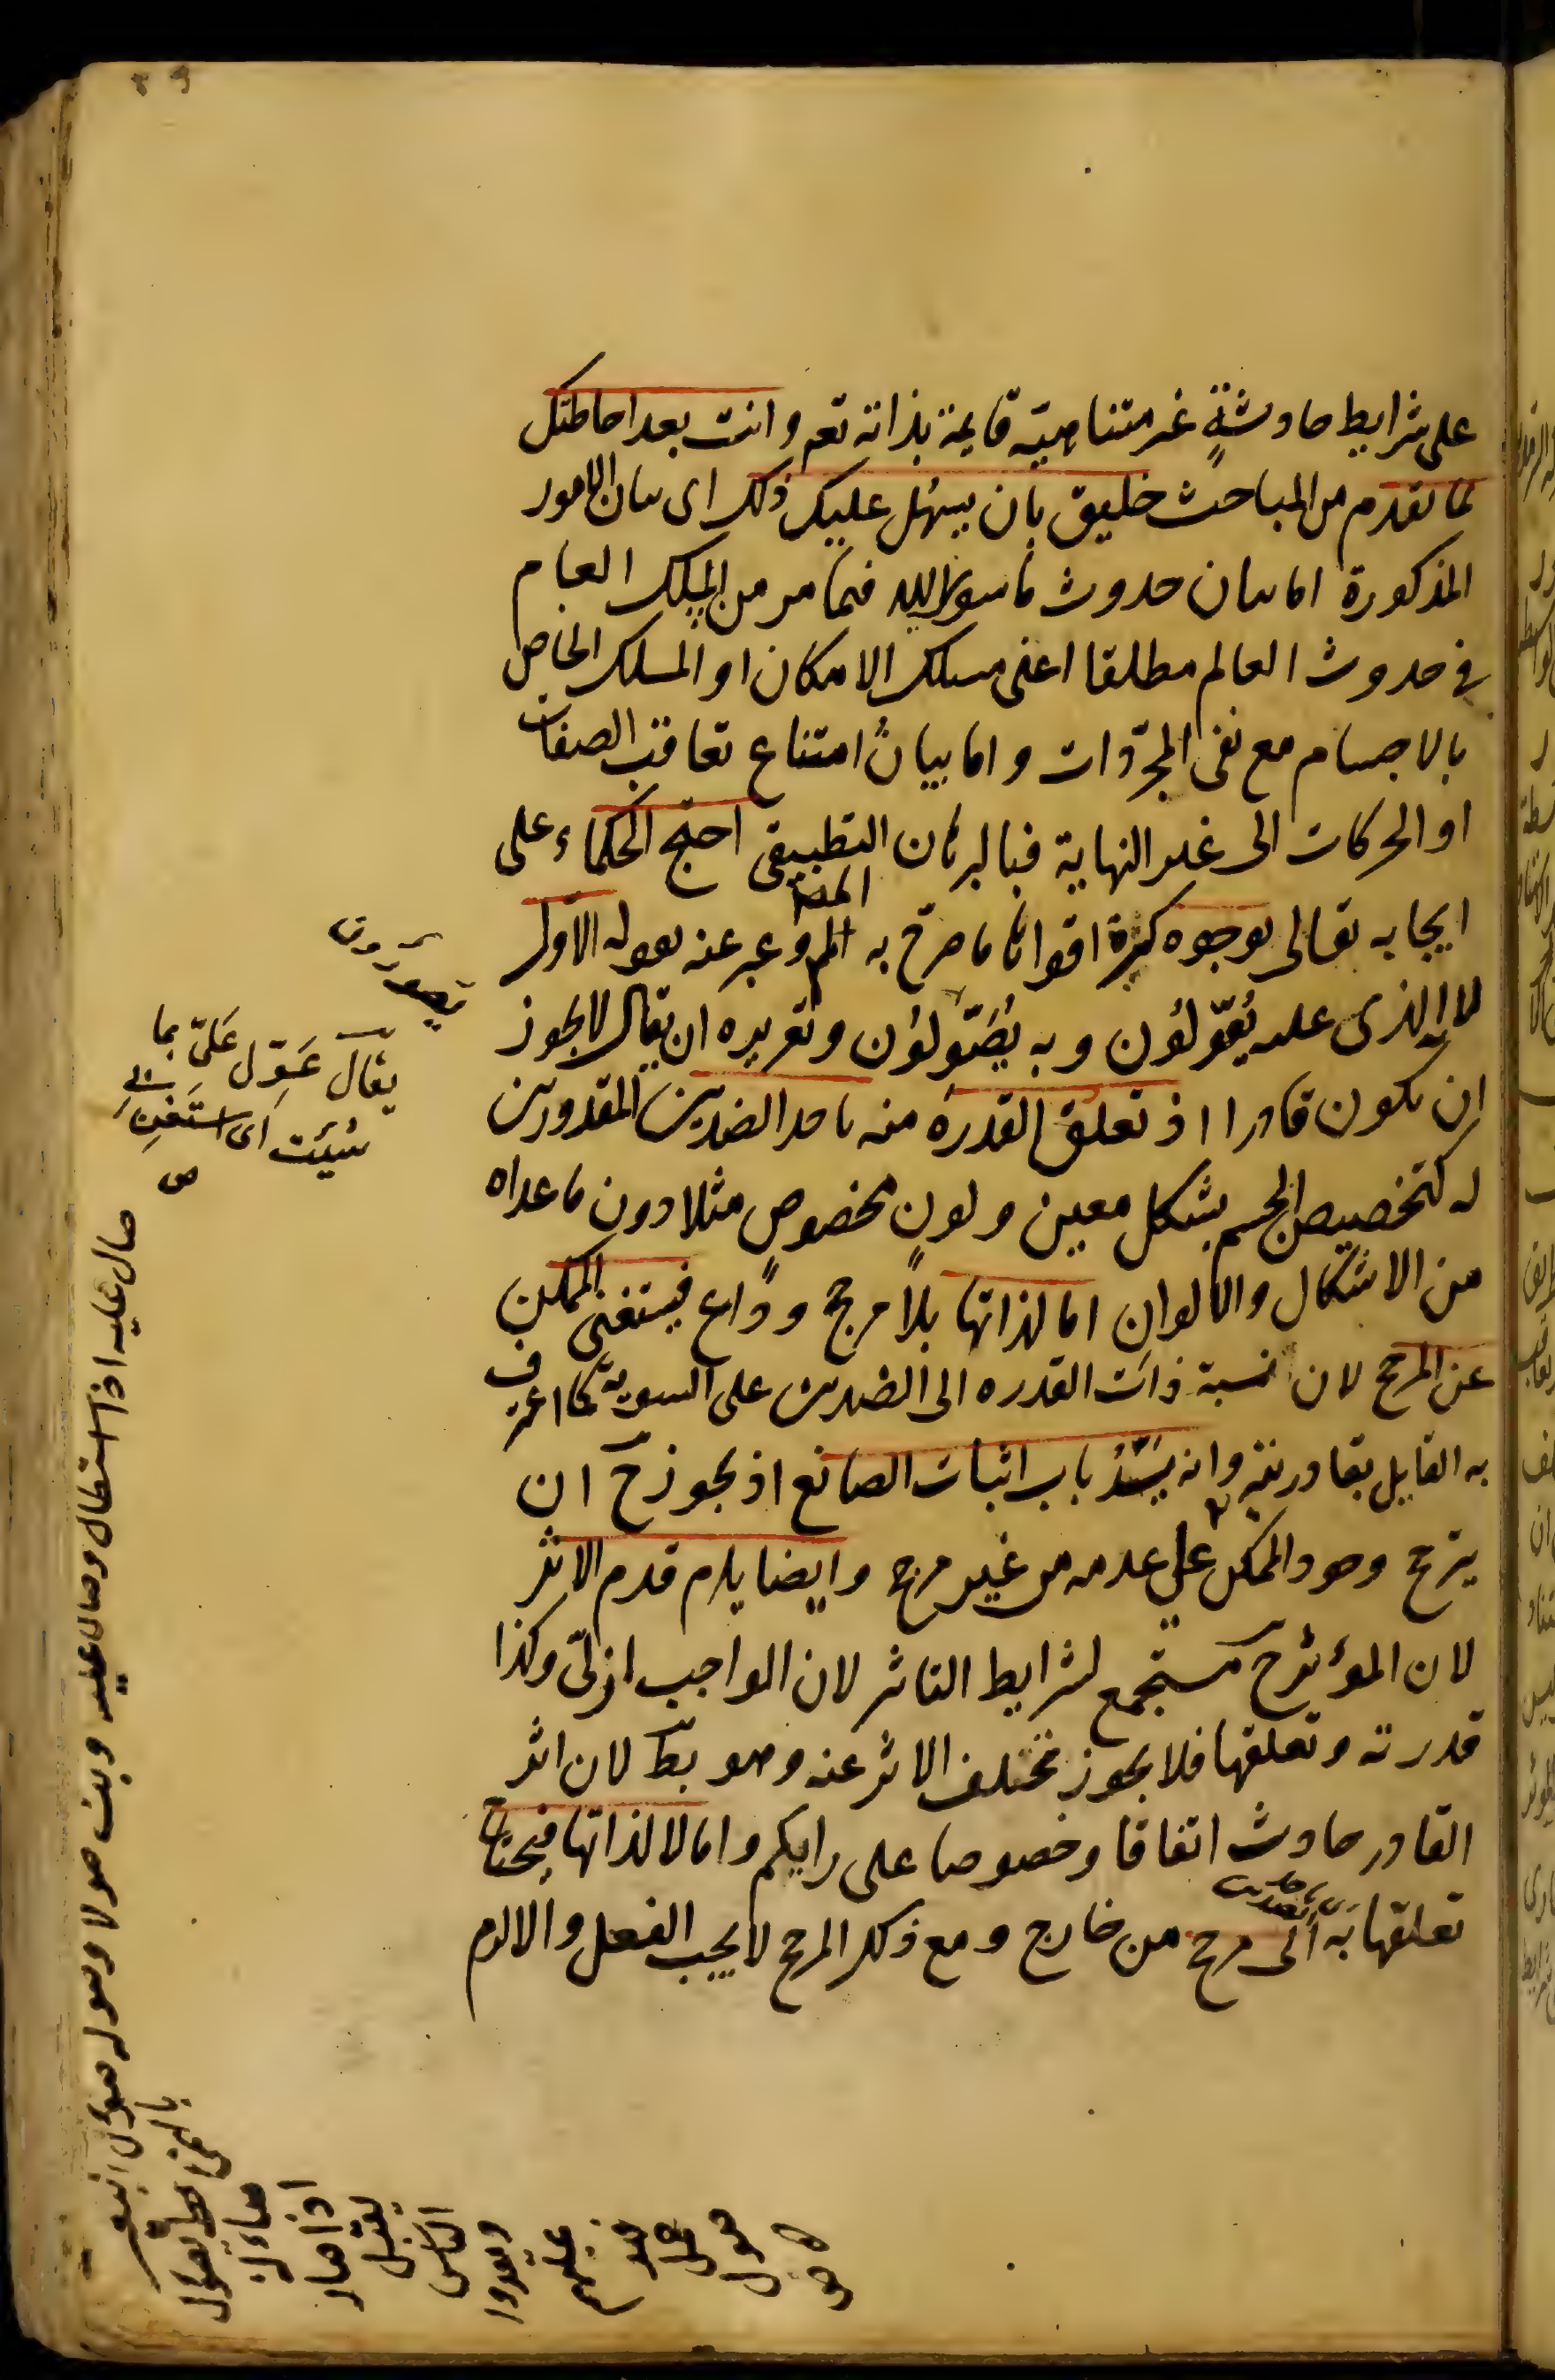 على شرايط حادثة غير متناهية قايمة بذاته تعم وانت بعد احاطتك
بما تقدم من المباحث خليق بان يسهل عليك ذلك اى بيان الامور
المذكورة اما بيان حدوث ما سوى الله فيما مر من المسلك العام
في حدوث العالم مطلقا اعنى مسلك الامكان او المسلك الخاص
بالاجسام مع نفى المجردات واما بيان امتناع تعاقب الصفات
او الحركات الى غير النهاية فبالبرهان التطبيقى احتج الحكماء على
ايجابه تعالى بوجوه كثيرة اقواها ما صرح به المص وعبر عنه بقوله الاول
الذى عليه يُعَوِّلُون وبه يُصَوِّلُون وتقريره ان يقال لا يجوز
ان يكون قادرا اذ تعلق القدرة منه باحد الضدين المقدورين
له كتخصيص الجسم بشكل معين ولون مخصوص مثلا دون ما عداه
من الاشكال والالوان اما لذاتها بلا مرجح وداع فيستغنى الممكن
عن المرجح لان نسبة ذات القدره الى الضدين على السوية كما اعترف
به القايل بقادريته وانه يسد باب اثبات الصانع اذ يجوز ح ان
يترجح وجود الممكن على عدمه من غير مرجح وايضا يلزم قدم الاثر
لان المؤثر ح مستجمع لشرايط التاثير لان الواجب ازلى وكذا
قدرته وتعلقها فلا يجوز تخلف الاثر عنه وهو بط لان اثر
القادر حادث اتفاقا وخصوصا على رايكم واما لا لذاتها فيحتاج
تعلقها به الى مرجح من خارج ومع ذلك المرجح لا يجب الفعل والا لزم
يقال عَوِّل عَلَىّ بما
شئت اى استعن بى
ص
صال عليه اذا استطال وصال عليه وثب صولا وصولة